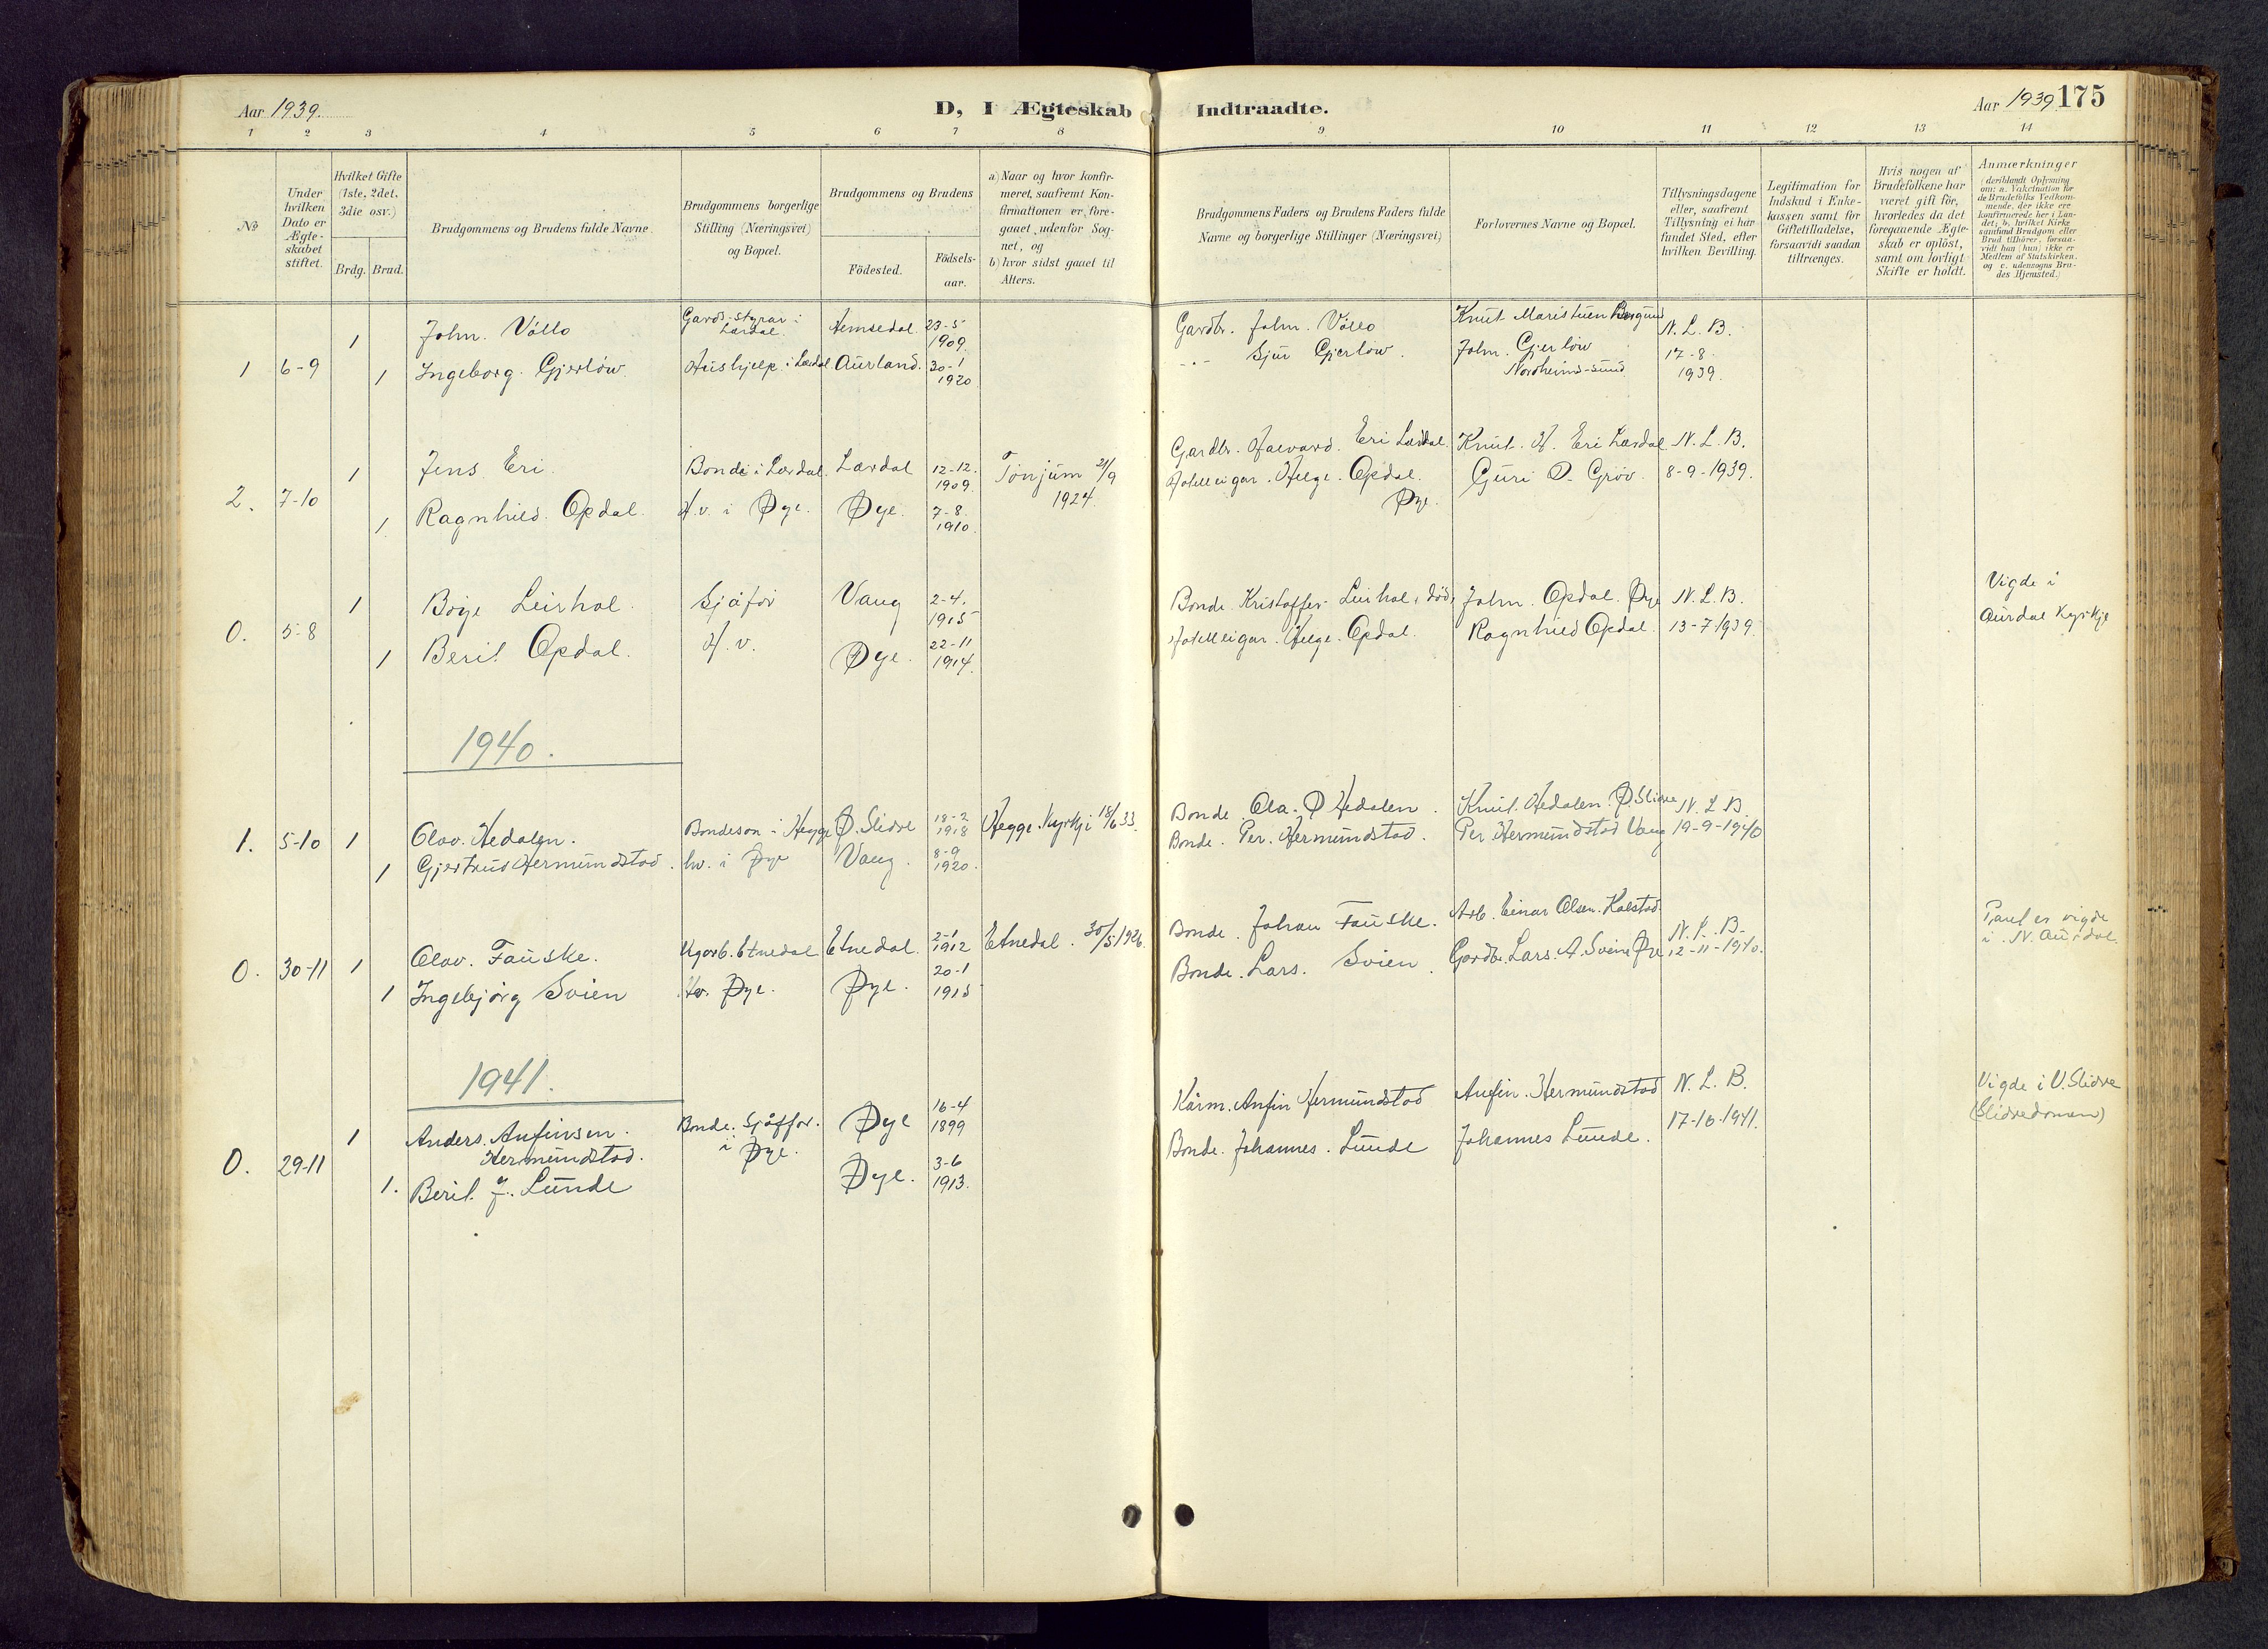 Aar 1939.
D, I Ægteskab
Indtraadte.
Aar 1939 175
1 2 3 4 5 6 7 8 9 10 11 12 13 14
No
Under
hvilken
Dato er
Ægte-
skabet
stiftet.
Hvilket Gifte
(1ste, 2det,
3die osv.)
Brdg. Brud.
Brudgommens og Brudens fulde Navne.
Brudgommens borgerlige
Stilling (Næringsvei)
og Bopæl.
Brudgommens og Brudens
Födested.
Födsels-
aar.
a) Naar og hvor konfir-
meret, saafremt Kon-
firmationen er fore-
gaaet udenfor Sog-
net, og
b) hvor sidst gaaet til
Alters.
Brudgommens Faders og Brudens Faders fulde
Navne og borgerlige Stillinger (Næringsvei)
Forlovernes Navne og Bopæl.
Tillysningsdagene
eller, saafremt
Tillysning ei har
fundet Sted, efter
hvilken Bevilling.
Legitimation for
Indskud i Enke-
kassen samt for
Giftetilladelse,
forsaavidt saadan
tiltrænges.
Hvis nogen af
Brudefolkene har
været gift för,
hvorledes da det
foregaaende Ægte-
skab er oplöst,
samt om lovligt
Skifte er holdt.
Anmærkninger
(deriblandt Oplysning
om: a. Vakcination for
de Brudefolks Vedkom-
mende, der ikke ere
konfirmerede her i Lan-
det; b. hvilket Kirke-
samfund Brudgom eller
Brud tilhörer, forsaa-
vidt han (hun) ikke er
Medlem af Statskirken.
og c. udensogns Bru-
des Hjemsted.)
1 6-9
1 John. Vøllo Gards-styrar i
Lærdal. Hemsedal. 23-5
1909.
1 Ingeborg. Gjerløw Hushjelp. i Lærdal. Aurland. 30-1
1920
Gardbr. John. Vøllo Knut Maristuen Borgund N. L. B.
-"- Sjur Gjerløw. John. Gjerløw
Nordheims-sund 17-8-
1939.
2. 7-10
1 Jens Eri. Bonde i Lærdal. Lærdal 12-12.
1909. Tønjum 21/9
1924.
1 Ragnhild. Opdal. H.v. i Øye. Øye. 7-8.
1910.
Gardbr. Halvard. Eri Lærdal. Knut. H. Eri Lærdal N. L. B.
Hotelleigar. Helge. Opdal.
Øye. Guri O. Grøv. 8-9-1939.
0. 5-8
1 Bøye Leirhol. Sjåfør Vang 2-4.
1915
1 Berit Opdal. H.v. Øye. 22-11
1914.
Bonde. Kristoffer Leirhol, død, John. Opdal. Øye N. L. B.
Hotelleigar. Helge. Opdal. Ragnhild Opdal. 13-7 1939.
Vigde i
Aurdal Kyrkje
1940.
1. 5-10 1 Olav. Hedalen. Bondeson i Hegge Ø. Slidre 18-2
1918 Hegge. Kyrkje 18/6 33.
1 Gjertrud Hermundstad. hv. i Øye Vang. 8-9
1920.
Bonde. Ola. Ø Hedalen. Knut. Hedalen. Ø Slidre N. L. B.
Bonde. Per. Hermundstad. Per Hermundstad Vang 19-9-1940
0. 30-11 1 Olav. Fauske. Etnedal Etnedal. 2-1
1912 Etnedal. 30/5 1926.
1 Ingebjørg Svien Hv. Øye. Øye. 20-1
1915
Bonde. Johan Fauske. Arb. Einar Olsen. Kalstad. N. L. B.
Bonde. Lars. Svien. Gardbr. Lars. A. Svien Øye 12-11-1940.
Paret er vigde
i N. Aurdal.
1941.
0. 29-11
1 Anders. Anfinsen.
Hermundstad. Bonde. Sjåffør.
i Øye. Øye 16-4
1899
1. Berit. J. Lunde Øye. 3-6
1913.
Anfin Hermundstad Anfin. Hermundstad N. L. B.
Bonde. Johannes. Lunde Johannes Lunde. 17-10-1941.
Vigde i V. Slidre
(Slidredomen)